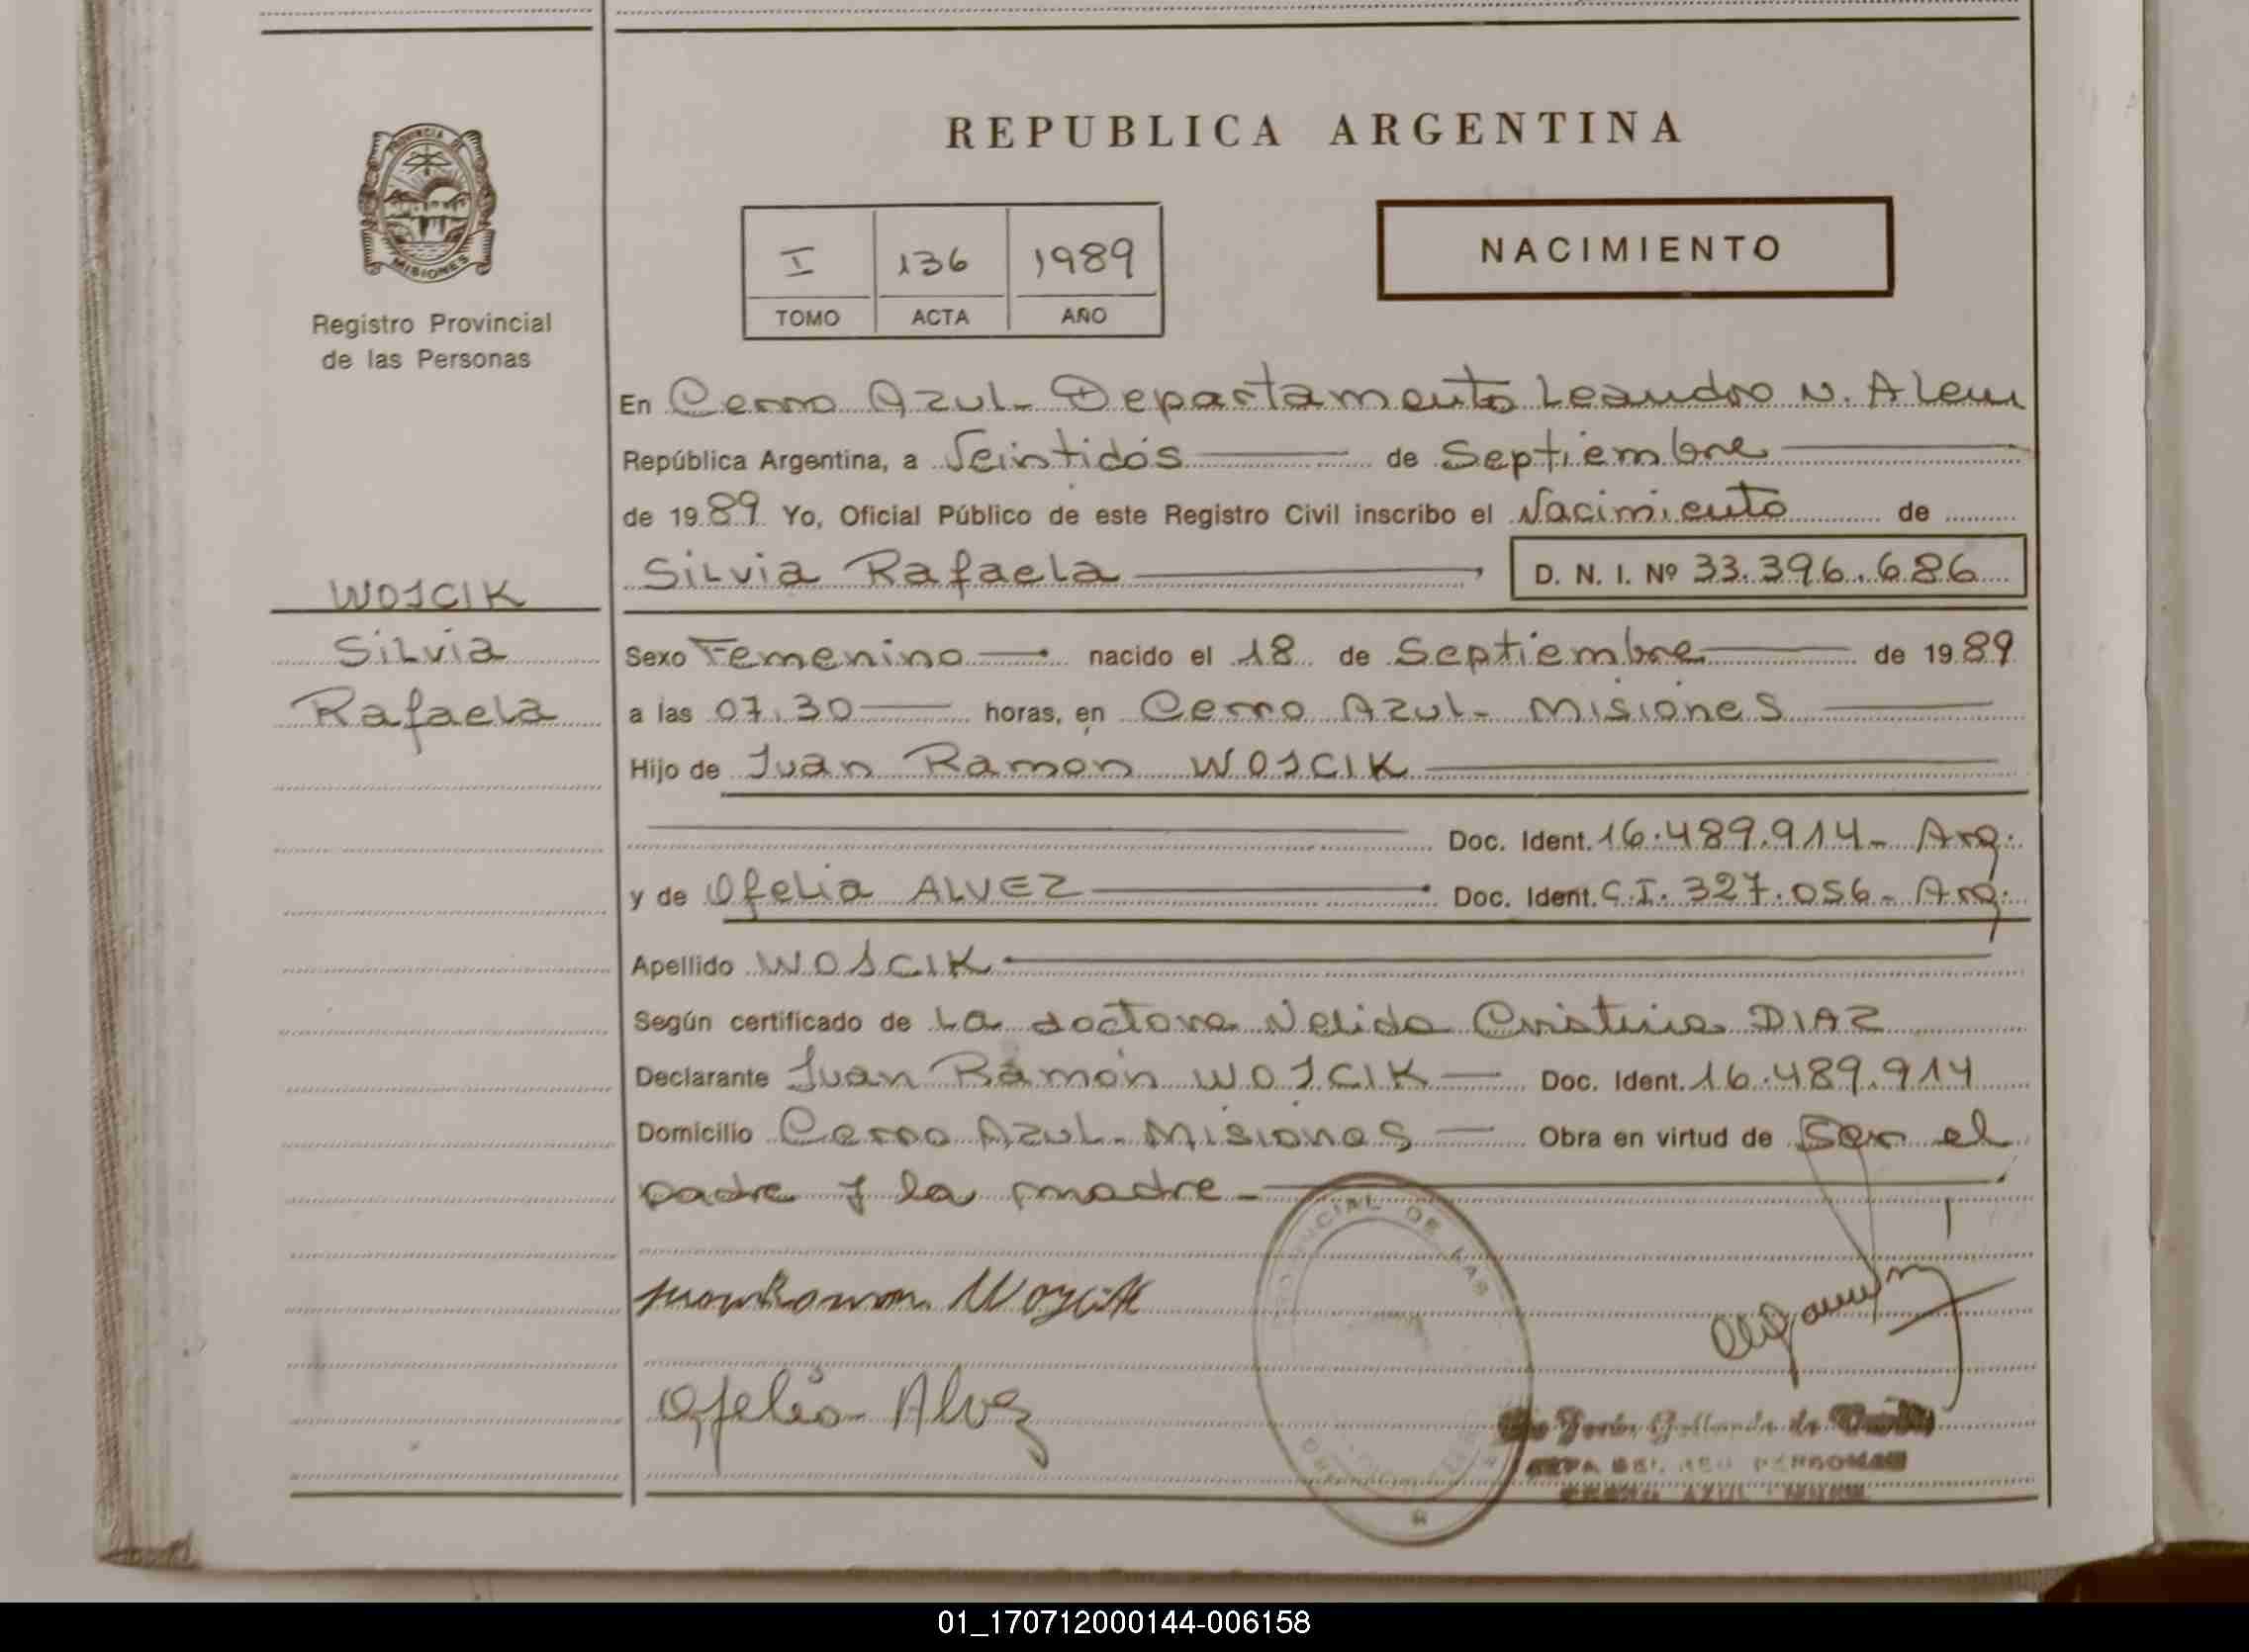 REPUBLICA ARGENTINA
PROVINCIA DE MISIONES
Registro Provincial
de las Personas
I 136 1989
TOMO ACTA AÑO
NACIMIENTO
En Cerro Azul - Departamento Leandro N. Alem
República Argentina, a Veintidós de Septiembre
de 1989 Yo, Oficial Público de este Registro Civil inscribo el Nacimiento de
Silvia Rafaela D. N. I. Nº 33.396.686
WOJCIK
Silvia
Rafaela
Sexo Femenino nacido el 18 de Septiembre de 1989
a las 07.30 horas, en Cerro Azul - Misiones
Hijo de Juan Ramón WOJCIK
Doc. Ident. 16.489.914 - Arg.
y de Ofelia ALVEZ Doc. Ident. C.I. 327.056 - Arg.
Apellido WOJCIK
Según certificado de La doctora Nelida Cristina DIAZ
Declarante Juan Ramón WOJCIK Doc. Ident. 16.489.914
Domicilio Cerro Azul - Misiones Obra en virtud de Ser el
padre y la madre
Juan Ramon Woycik
Ofelia Alvez
CIAL DE LAS
PERSONAS
CERRO AZUL
01_170712000144-006158